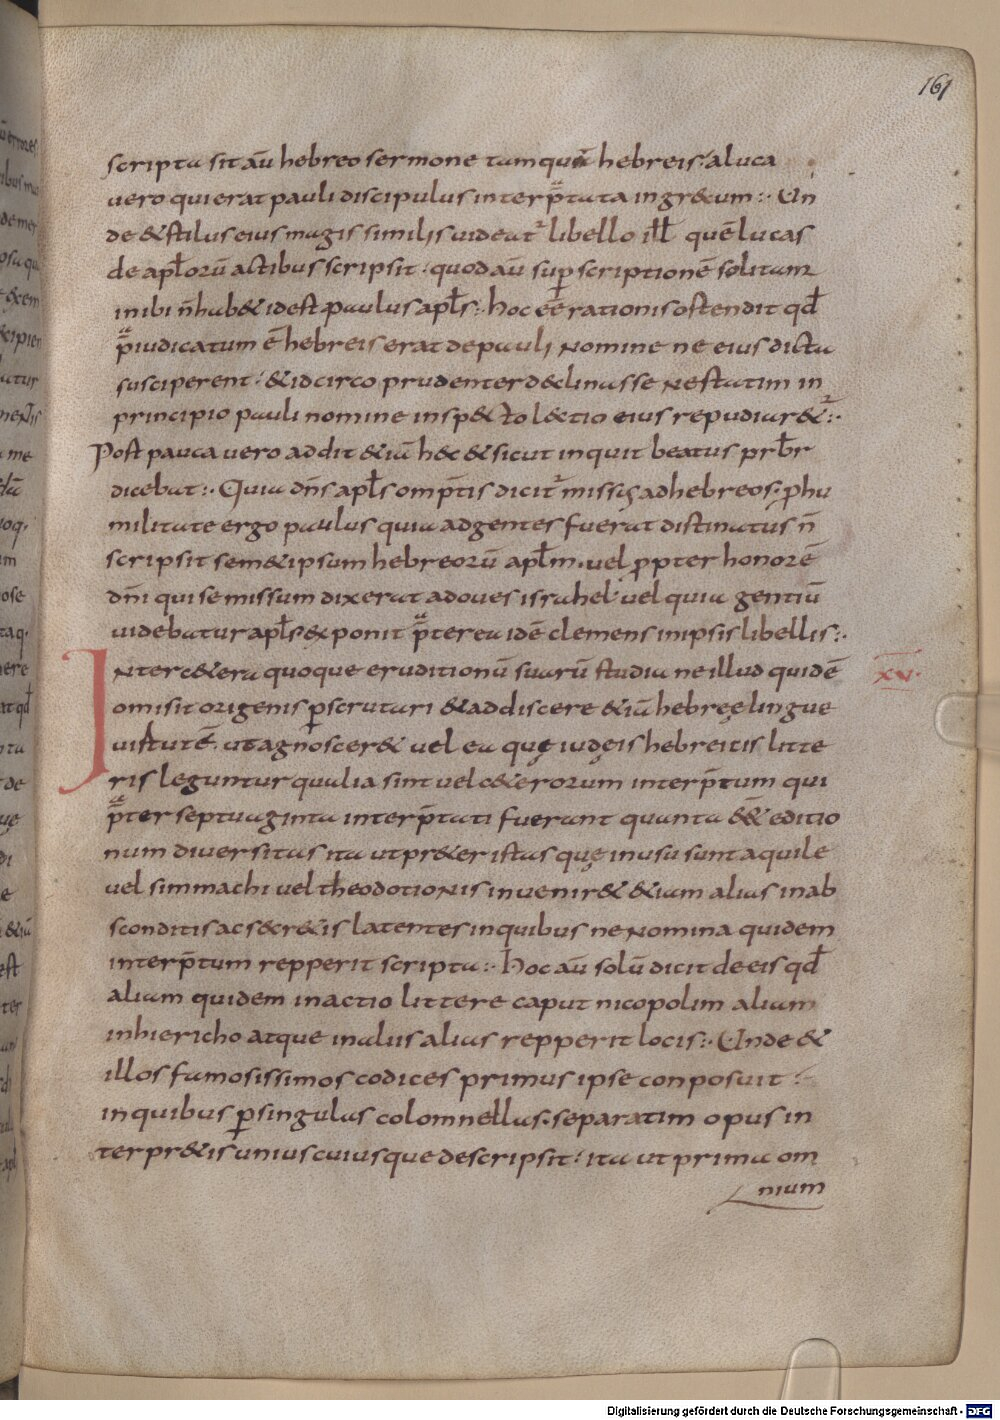 161
scripta sit aū hebreo sermone tamquā hebreis· a luca
vero qui erat pauli discipulus interp̄tata in gr&cum:· Un
de & stilus eius magis similis videat᷑ libello ill̄ quē lucas
de apl̄orū actibus scripsit· quod aū sup̱scriptionē solitam
inibi n̄ hab& id est paulus apl̄s:· hoc eē rationis ostendit qd̄
p̄iudicatum ē hebreis erat de pauli nomine ne eius dicta
susciperent· & idcirco prudenter declinasse ne statim in
principio pauli nomine insp&to l&tio eius repudiar&᷑:·
Post pauca vero addit &iā hęc & sicut inquit beatus prb̄r
dicebat:· Quia dn̄s apl̄s omp̄tis dicit᷑ missus ad hebreos· p̱ hu
militate ergo paulus quia ad gentes fuerat distinatus n̄
scripsit sem&ipsum hebreorū apl̄m· vel p̱pter honorē
dn̄i qui se missum dixerat ad oves israhel· vel quia gentiū
videbatur apl̄s exponit p̄terea idē clemens in ipsis libellis:·
Inter c&era quoque eruditionū suarū studia ne illud quidē
xv·
omisit origenis p̱scrutari & addiscere &iā hebreę lingue
virtutē· ut agnoscer& vel ea quę iudęis hebreicis litte
ris leguntur qualia sint vel c&erorum interp̄tum qui
p̄ter septuaginta interp̄tati fuerant quanta eē& editio
num diversitas ita ut pr&er istas quę in usu sunt aquile
vel simmachi vel theodotionis invenir& &iam alias in ab
sconditis ac secr&is latentes in quibus ne nomina quidem
interp̄tum repperit scripta:· Hoc aū solū dicit de eis qd̄
aliam quidem in actio littore caput nicopolim aliam
in hiericho atque in aliis alias repperit locis:· Unde &
illos famosissimos codices primus ipse conposuit·
in quibus p̱ singulas colomnellas· separatim opus in
terpr&is uniuscuiusque descripsit· ita ut prima om
nium
Digitalisierung gefördert durch die Deutsche Forschungsgemeinschaft - DFG